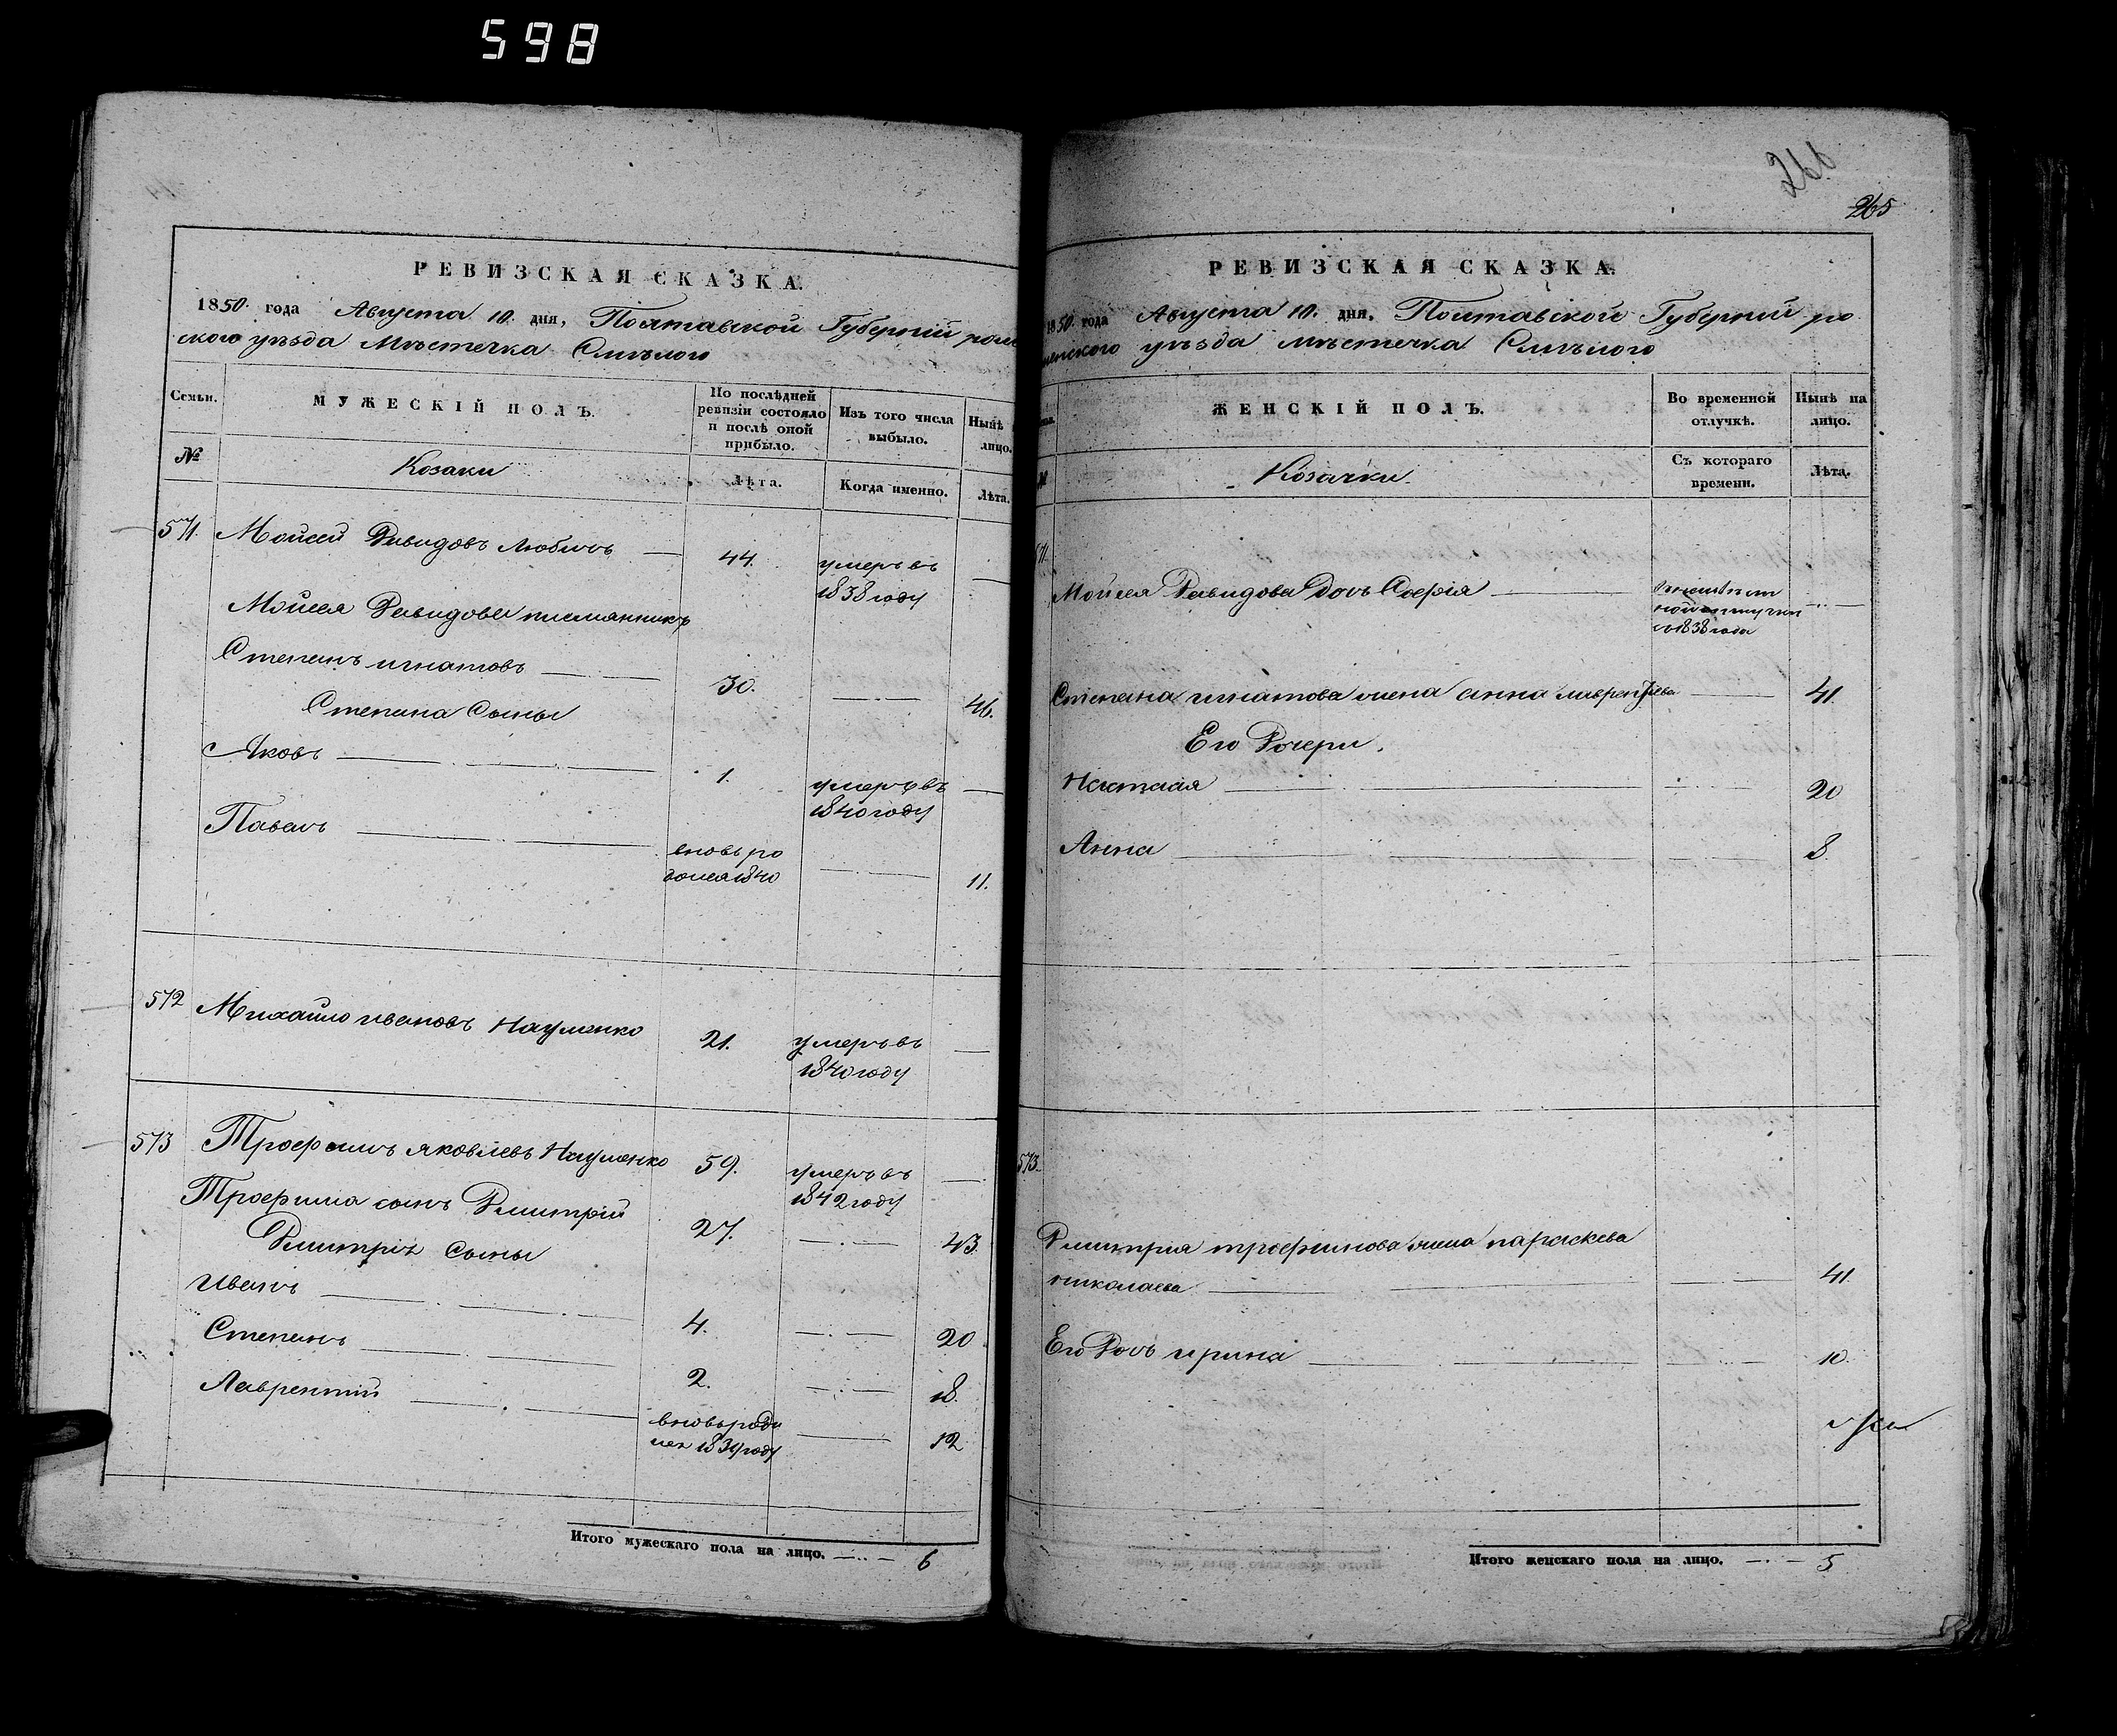 598
РЕВИЗСКАЯ СКАЗКА.
1850 года Августа 10. дня, Полтавской Губерніи ром
ского уѣзда Мѣстечка Смѣлого
Семьи.
МУЖЕСКІЙ ПОЛЪ.
По послѣдней ревизіи состояло и послѣ оной прибыло.
Изъ того числа выбыло.
Нынѣ
лицо.
№
Козаки
Лѣта.
Когда именно.
Лѣта.
571. Мойсей Давидовъ Любичъ — 44. умеръ въ —
1838 году
Мойсея Давидова
Степанъ игнатовъ — 30. — 46.
Степана Сыны
Яковъ — 1. умеръ въ —
1840 году
Павелъ — вновь ро — 11.
дился 1840
572 Михайло ивановъ Науменко 21. умеръ въ —
1840 году
573 Трофимъ яковлевъ Науменко 59. умеръ въ —
1842 году
Трофима сынъ Дмитрій 27. — 43.
Дмитрія Сыны
Иванъ — 4. — 20
Степанъ — 2. — 18.
Лаврентій — вновь роди — 12
лся 1839 году
Итого мужескаго пола на лицо. — 6
266
265
РЕВИЗСКАЯ СКАЗКА.
1850 года Августа 10. дня, Полтавской Губерніи ро
менского уѣзда мѣстечка Смѣлого
ЖЕНСКІЙ ПОЛЪ.
Во временной отлучкѣ.
Нынѣ на лицо.
Козачки
Съ котораго времени.
Лѣта.
571.
Мойсея Давидова Дочь Софія —
с 1838 года
Степана игнатова жена анна лаврентьева — 41.
Его Дочери.
Наталія — 20
Анна — 8.
573.
Дмитрія трофимова жена параскева
николаева — 41.
Его Дочь ирина — 10.
Итого женскаго пола на лицо. — 5